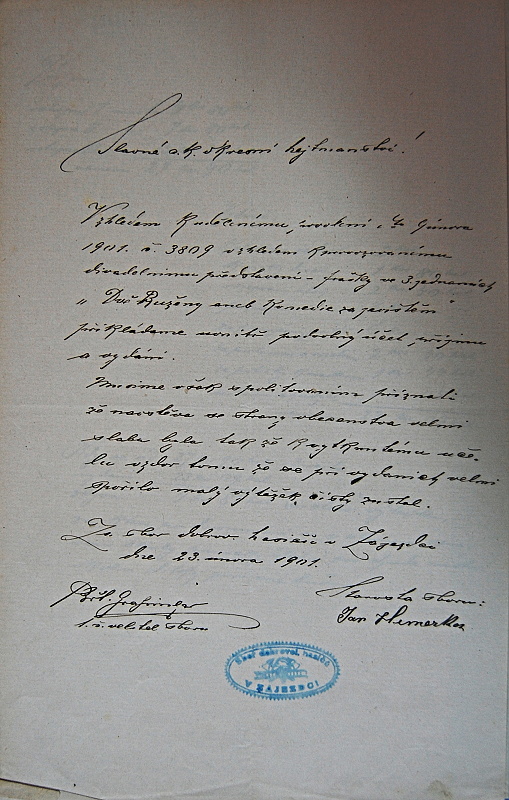 Slavné c. k. okresní hejtmanství!
Vzhledem k udělenému povolení z 4 února
1901. č. 3809 vzhledem k provozovanému
divadelnímu představení - frašky ve 3 jednáních
" Dvě Ruženy aneb Komedie za jevištěm "
přikládáme uvnitř podrobný účet, příjmu
a vydání.
Musíme však s politováním přiznati
že návštěva se strany obecenstva velmi
slabá byla tak že k vytknutému úče-
lu vzdor tomu že se při vydaních velmi
spořilo malý výtěžek čistý zůstal.
Za sbor dobrov. hasičů v Zájezdci
dne 23. února 1901.
Starosta sboru:
t. č. velitel sboru
Jan Hemerka
Sbor dobrovol. hasičů
V ZÁJEZDCI